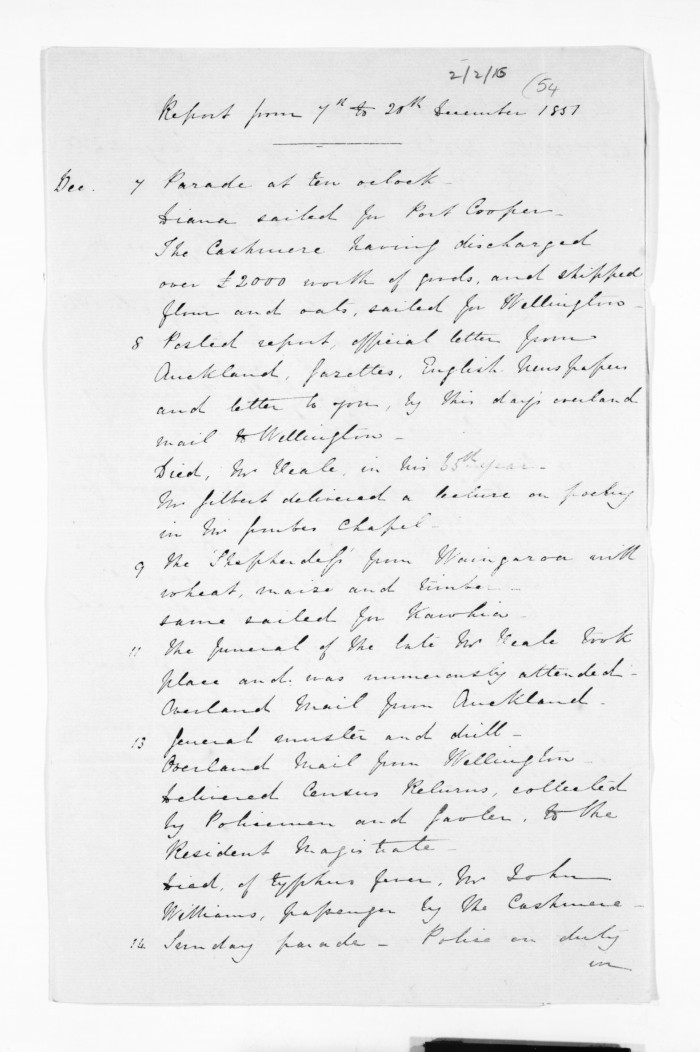 2/2/15
(54
Report from 7th to 20th December 1851
Dec. 7 Parade at ten oclock -
Diana sailed for Port Cooper -
The Cashmere having discharged
over £2000 worth of goods, and shipped
flour and oats, sailed for Wellington -
8 Posted report, official letter from
Auckland, Gazettes, English Newspapers
and letter to you, by this day's overland
mail to Wellington -
Died, Mr Veale, in his 65th year -
Mr Gilbert delivered a lecture on poetry
in Mr Chapel -
9 The Shepherdess from Waingaroa with
wheat, maize and timber -
same sailed for Kawhia -
11 The funeral of the late Mr Veale took
place and was numerously attended -
Overland Mail from Auckland.
13 General muster and drill -
Overland Mail from Wellington -
Delivered Census Returns, collected
by Policemen and Gaoler, to the
Resident Magistrate -
Died, of typhus fever, Mr John
Williams, passenger by the Cashmere -
14. Sunday parade - Police on duty
in